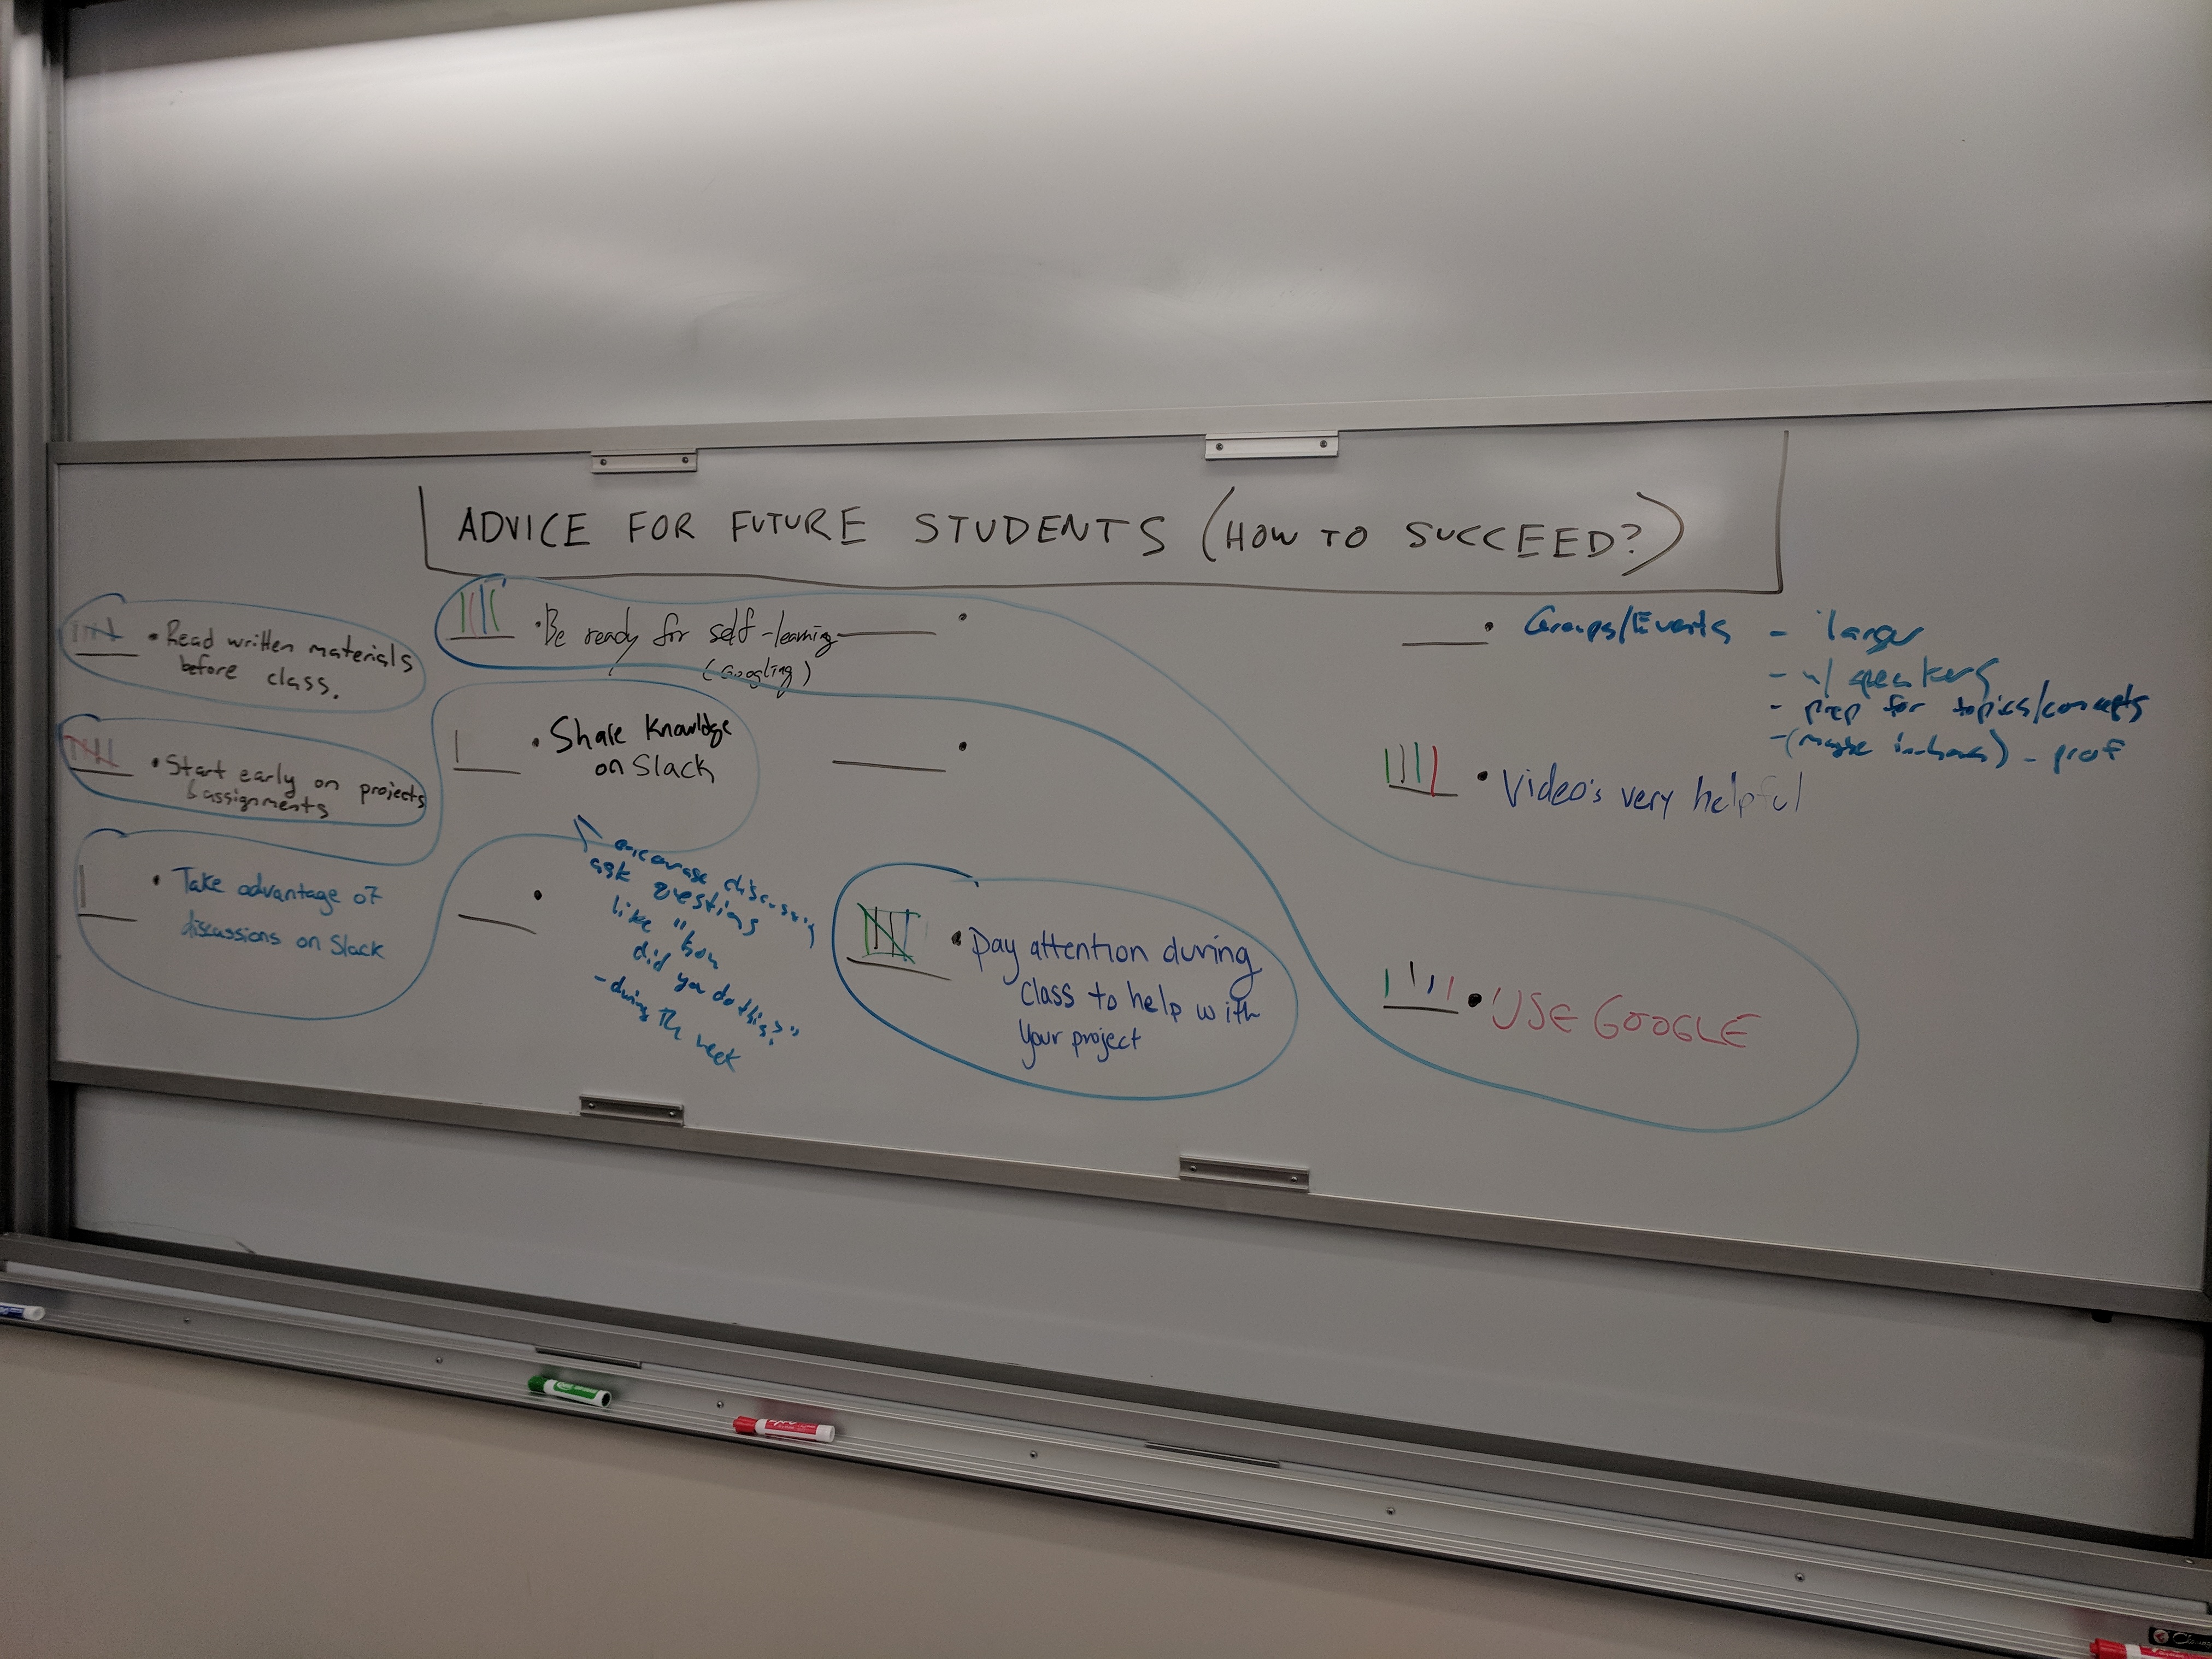 ADVICE FOR FUTURE STUDENTS (HOW TO SUCCEED?)
• Read written materials
before class.
• Start early on projects
& assignments
• Take advantage of
discussions on Slack
• Be ready for self-learning
(Googling)
• Share Knowldge
on Slack
encourage discussions
ask questions
like "how
did you do this?"
- during the week
• Pay attention during
class to help with
your project
• Groups/Events - larger
- w/ speakers
- prep for topics/concepts
- (maybe in-class) - prof
• Video's very helpful
• USE GOOGLE